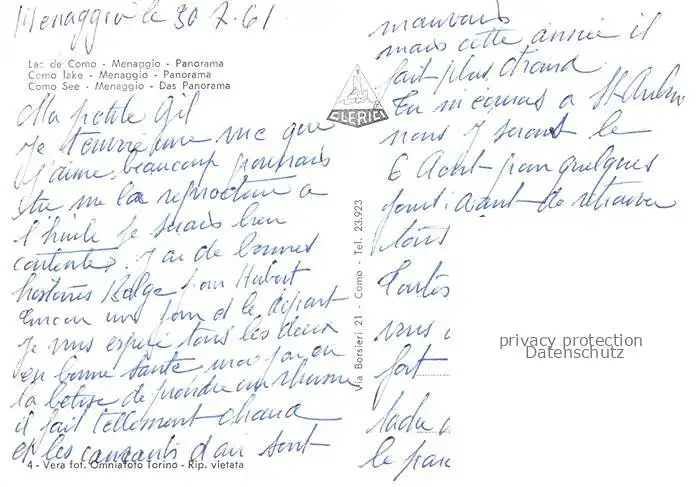 Menaggio le 30.7.61
Lac de Como - Menaggio - Panorama
Como lake - Menaggio - Panorama
Como See - Menaggio - Das Panorama
Ma petite Gil
je t'envoie une vue que
j'aime beaucoup pourrais
tu me la reproduire a
l'huile je serais bien
contente. J'ai de bonnes
histoires Belge pour Hubert
Encore un jour et le départ
je vous espère tous les deux
en bonne santé moi j'ai eu
la bêtise de prendre un rhume
il fait tellement chaud
et les courants d'air sont
4 - Vera fot. Omniafoto Torino - Rip. vietata
CLERICI
Via Borsieri 21 - Como - Tel. 23.923
mauvais
mais cette année il
fait plus chaud
Tu m'écriras a St Aubin
nous y serons le
6 Août pour quelques
jours avant de retrouver
tous
Toutes
vous
fort
le
privacy protection
Datenschutz